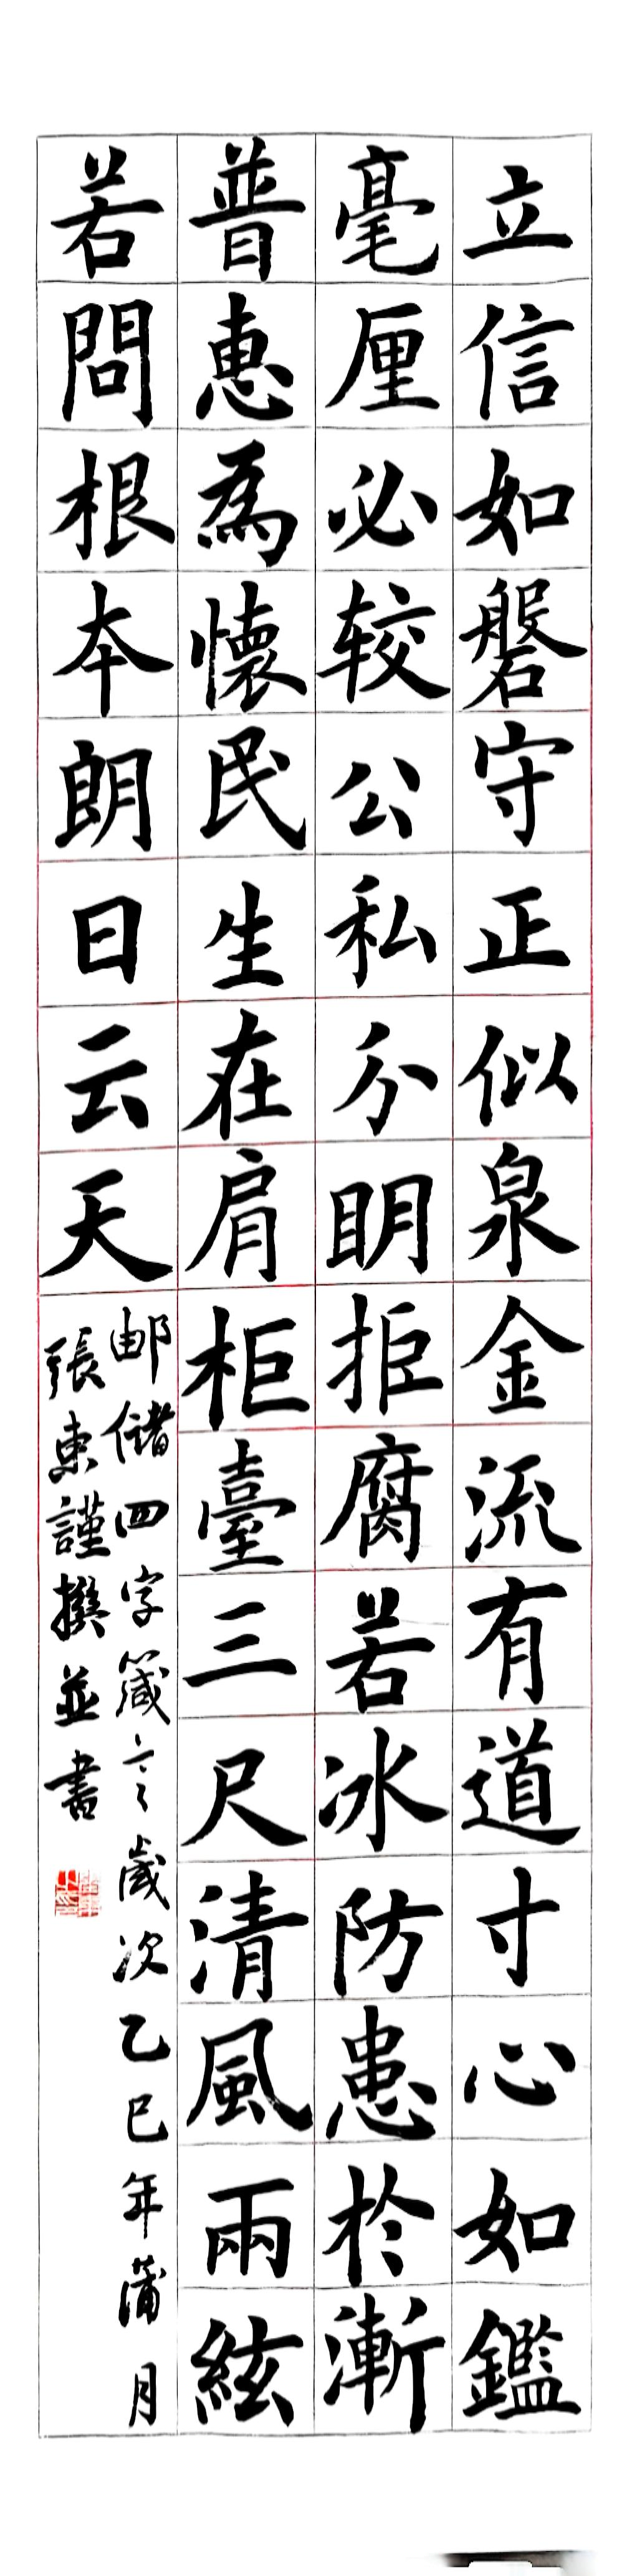 立信如磐守正似泉金流有道寸心如鑑
毫厘必较公私分明拒腐若冰防患於漸
普惠為懷民生在肩柜臺三尺清風兩絃
若問根本朗日云天
邮储四字箴言歲次乙巳年蒲月
張東謹撰並書